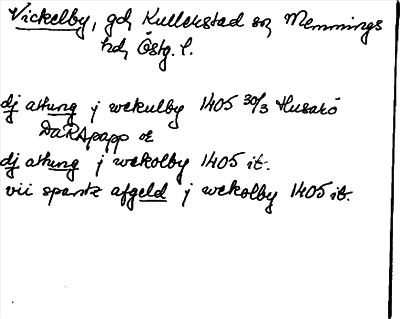 Vickelby, gd, Kullerstad sn, Memmings
hd, Östg. l.
dj attung j wekulby 1405 30/3 Husarö
DaRApapp or
dj attung j wekolby 1405 it.
vii spantz afgeld j wekolby 1405 it.